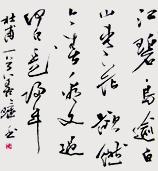 江碧鳥逾白
山青花欲燃
今春看又過
何日是歸年
杜甫一首書